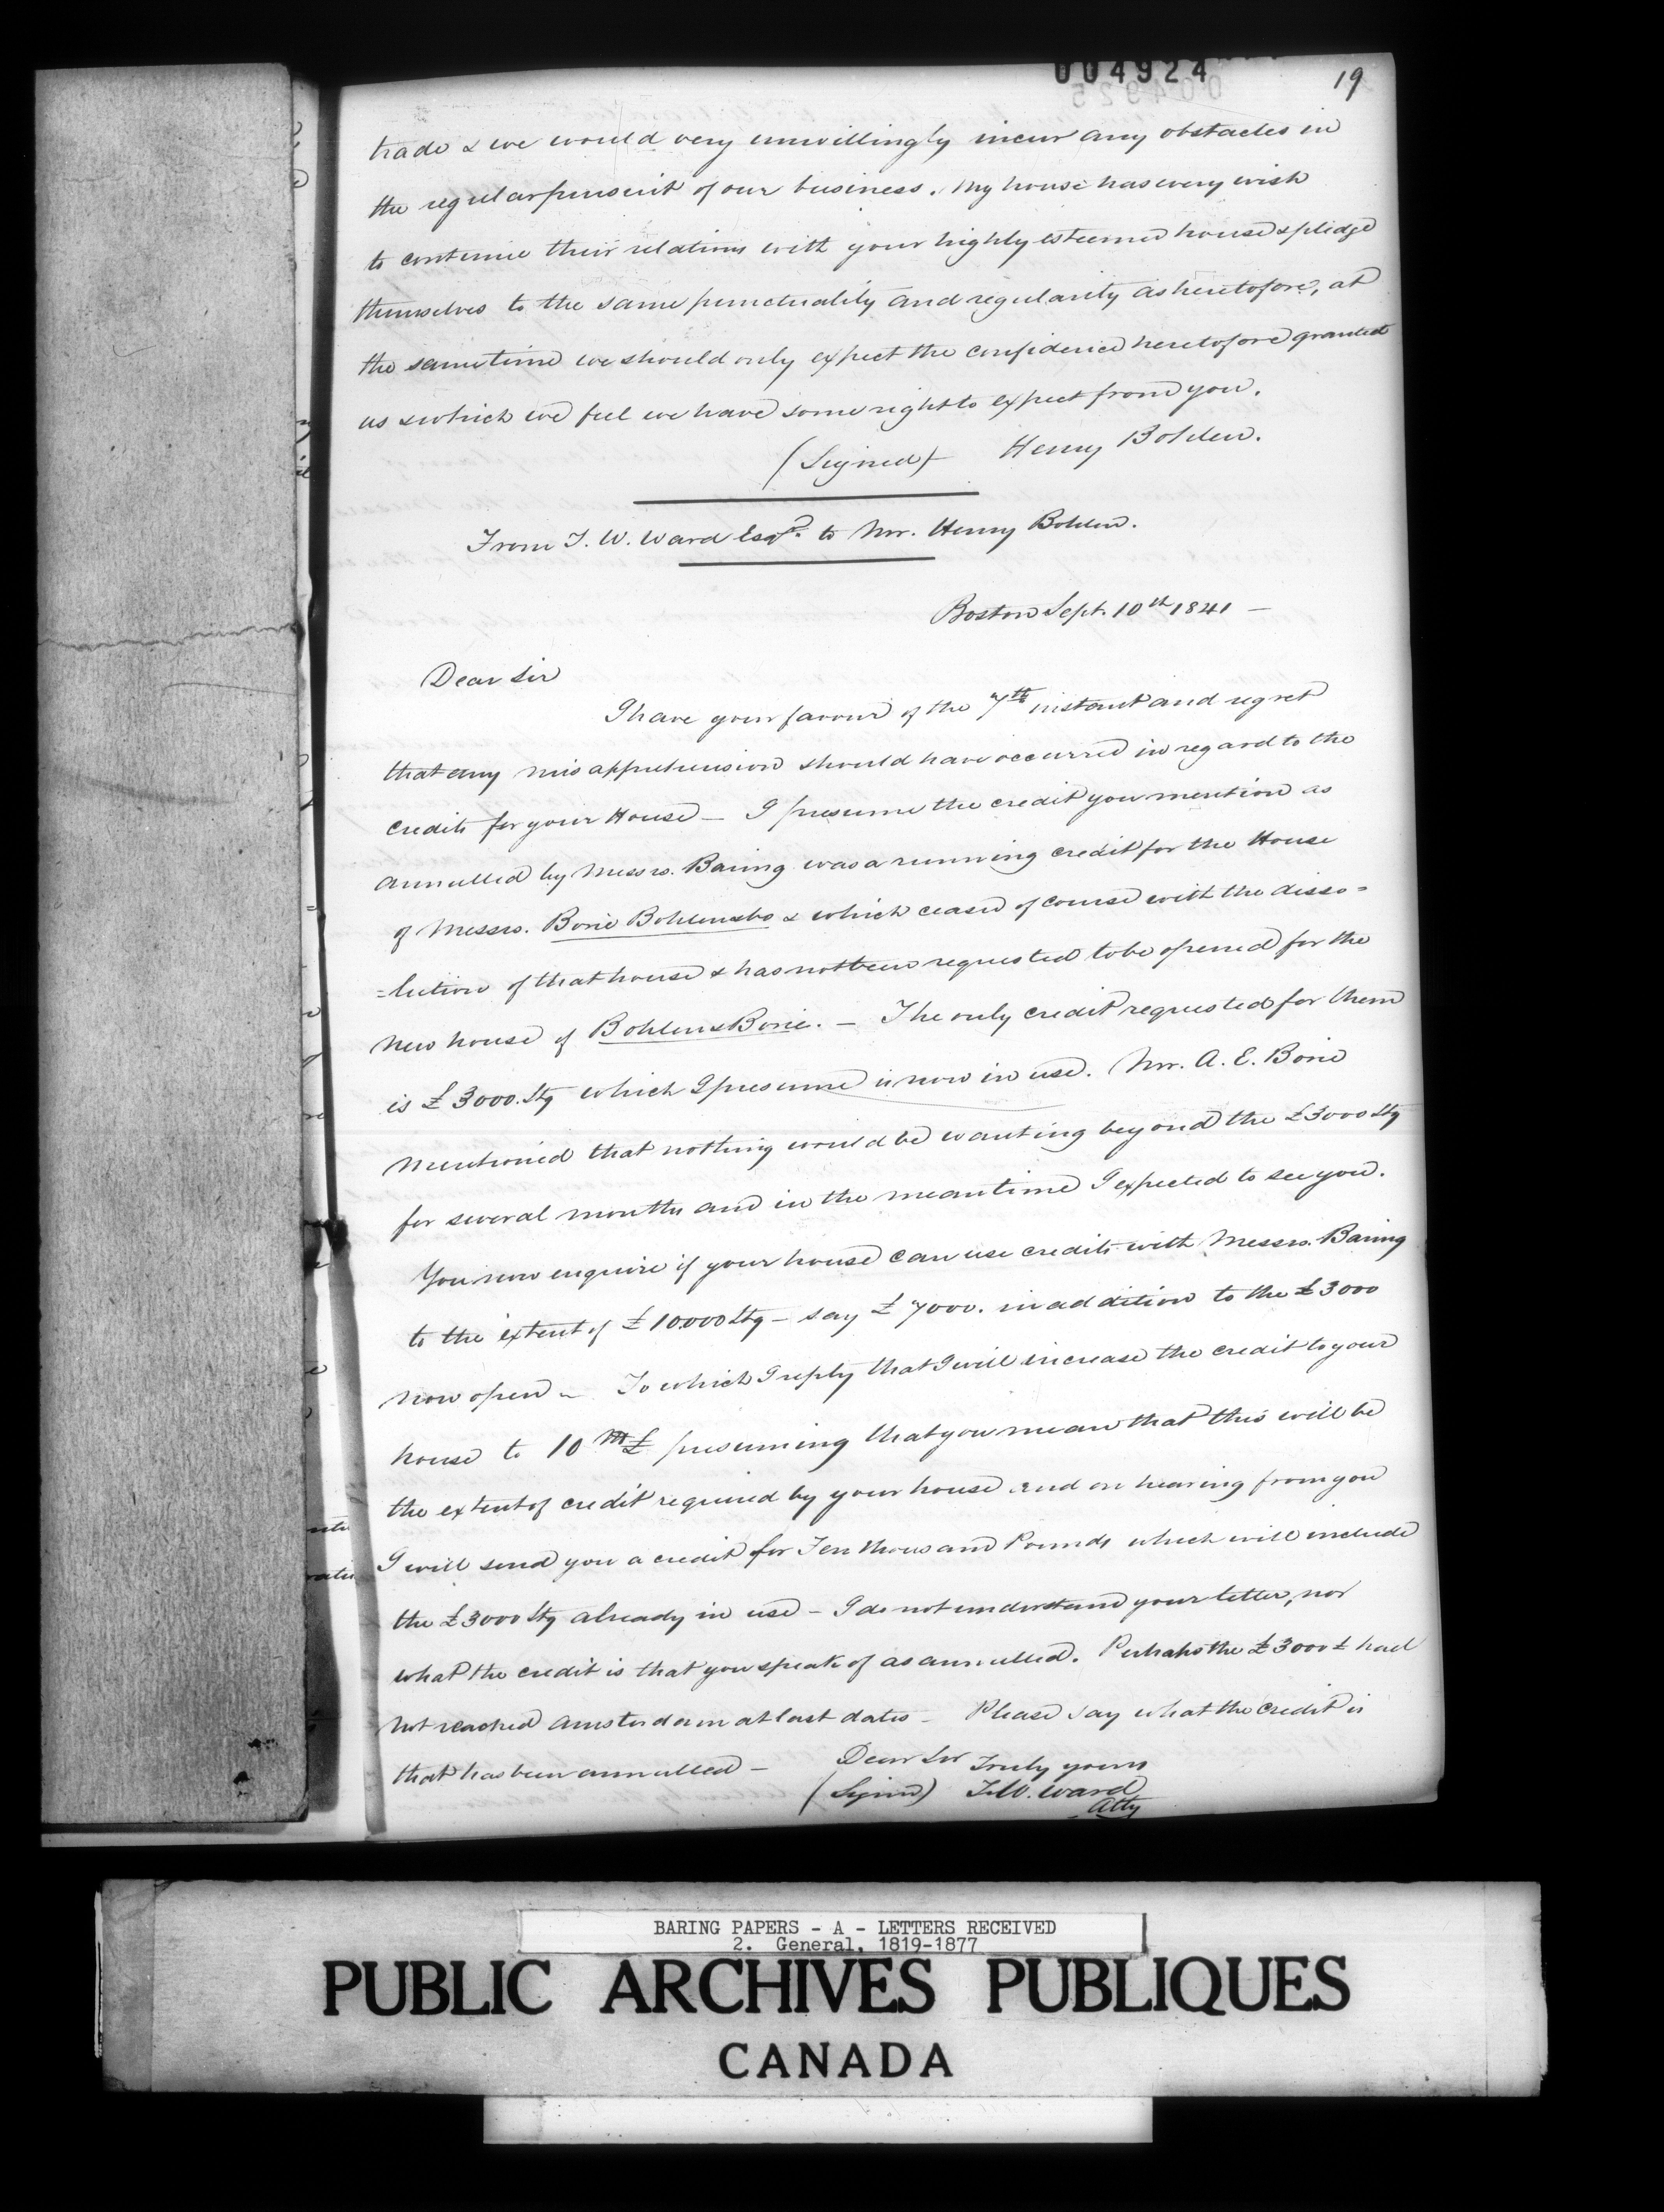 004924
19
trade & we would very unwillingly incur any obstacles in
the regular pursuit of our business. My house has every wish
to continue their relations with your highly esteemed house & pledge
themselves to the same punctuality and regularity as heretofore, at
the same time we should only expect the confidence heretofore granted
us & which we feel we have some right to expect from you.
(Signed) Henry Bohlen.
From T. W. Ward Esqr. to Mr. Henry Bohlen.
Boston Sept. 10th 1841 —
Dear Sir
I have your favour of the 7th instant and regret
that any misapprehension should have occurred in regard to the
credits for your House — I presume the credit you mention as
annulled by Messrs. Baring was a running credit for the House
of Messrs. Borie Bohlens & Co & which ceased of course with the disso=
=lution of that house & has not been requested to be opened for the
new house of Bohlens & Borie. — The only credit requested for them
is £3000. Stg which I presume is now in use. Mr. A. E. Borie
mentioned that nothing would be wanting beyond the £3000 Stg
for several months and in the meantime I expected to see you.
You now enquire if your house can use credits with Messrs. Baring
to the extent of £10000 Stg — say £7000. in addition to the £3000
now open — To which I reply that I will increase the credit to your
house to 10 M£ presuming that you mean that this will be
the extent of credit required by your house and on hearing from you
I will send you a credit for Ten thousand Pounds which will include
the £3000 Stg already in use — I do not understand your letter, nor
what the credit is that you speak of as annulled. Perhaps the £3000 £ had
not reached Amsterdam at last dates — Please say what the credit is
that has been annulled — Dear Sir Truly yours
(Signed) T. W. Ward
Atty
BARING PAPERS - A - LETTERS RECEIVED
2. General, 1819-1877
PUBLIC ARCHIVES PUBLIQUES
CANADA